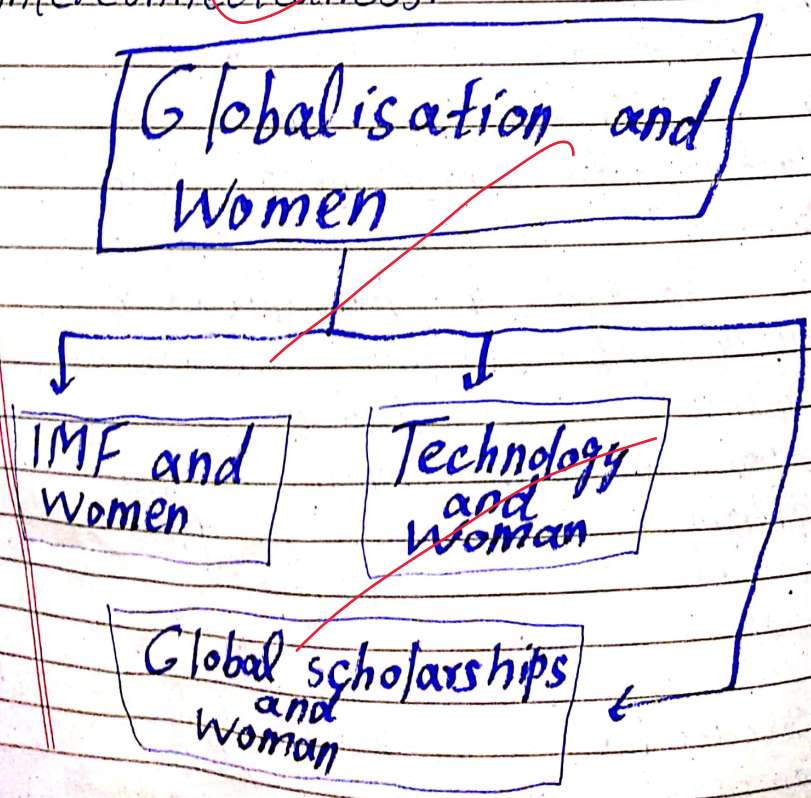 Globalisation and
Women
IMF and
Women
Technology
and
Woman
Global scholarships
and
Woman